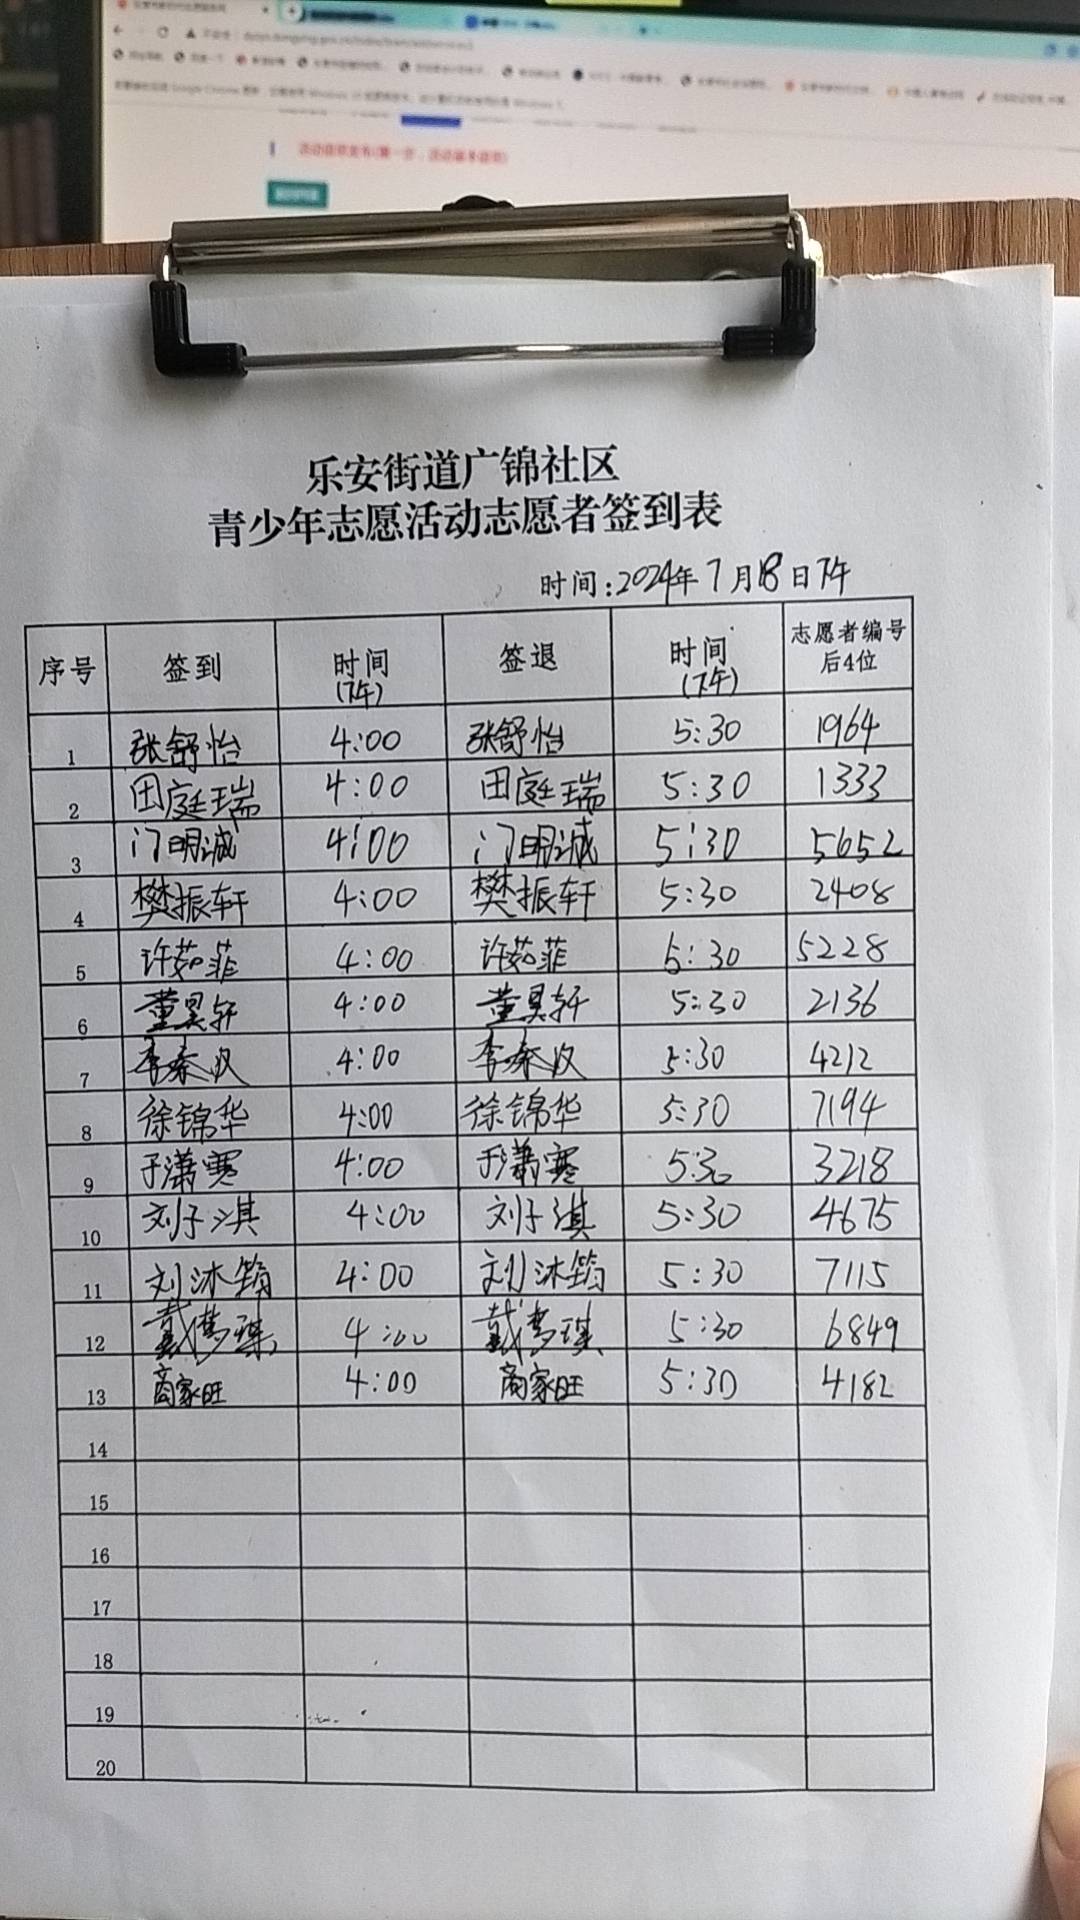 乐安街道广锦社区
青少年志愿活动志愿者签到表
时间:2024年7月18日下午
序号 签到 时间(下午) 签退 时间(下午) 志愿者编号后4位
1 张舒怡 4:00 张舒怡 5:30 1964
2 田庭瑞 4:00 田庭瑞 5:30 1333
3 门明诚 4:00 门明诚 5:30 5652
4 樊振轩 4:00 樊振轩 5:30 2408
5 许茹菲 4:00 许茹菲 5:30 5228
6 董昊轩 4:00 董昊轩 5:30 2136
7 李秦汉 4:00 李秦汉 5:30 4212
8 徐锦华 4:00 徐锦华 5:30 7194
9 于潇寒 4:00 于潇寒 5:30 3218
10 刘子淇 4:00 刘子淇 5:30 4675
11 刘沐筠 4:00 刘沐筠 5:30 7115
12 戴梦琪 4:00 戴梦琪 5:30 6849
13 商家旺 4:00 商家旺 5:30 4182
14
15
16
17
18
19
20